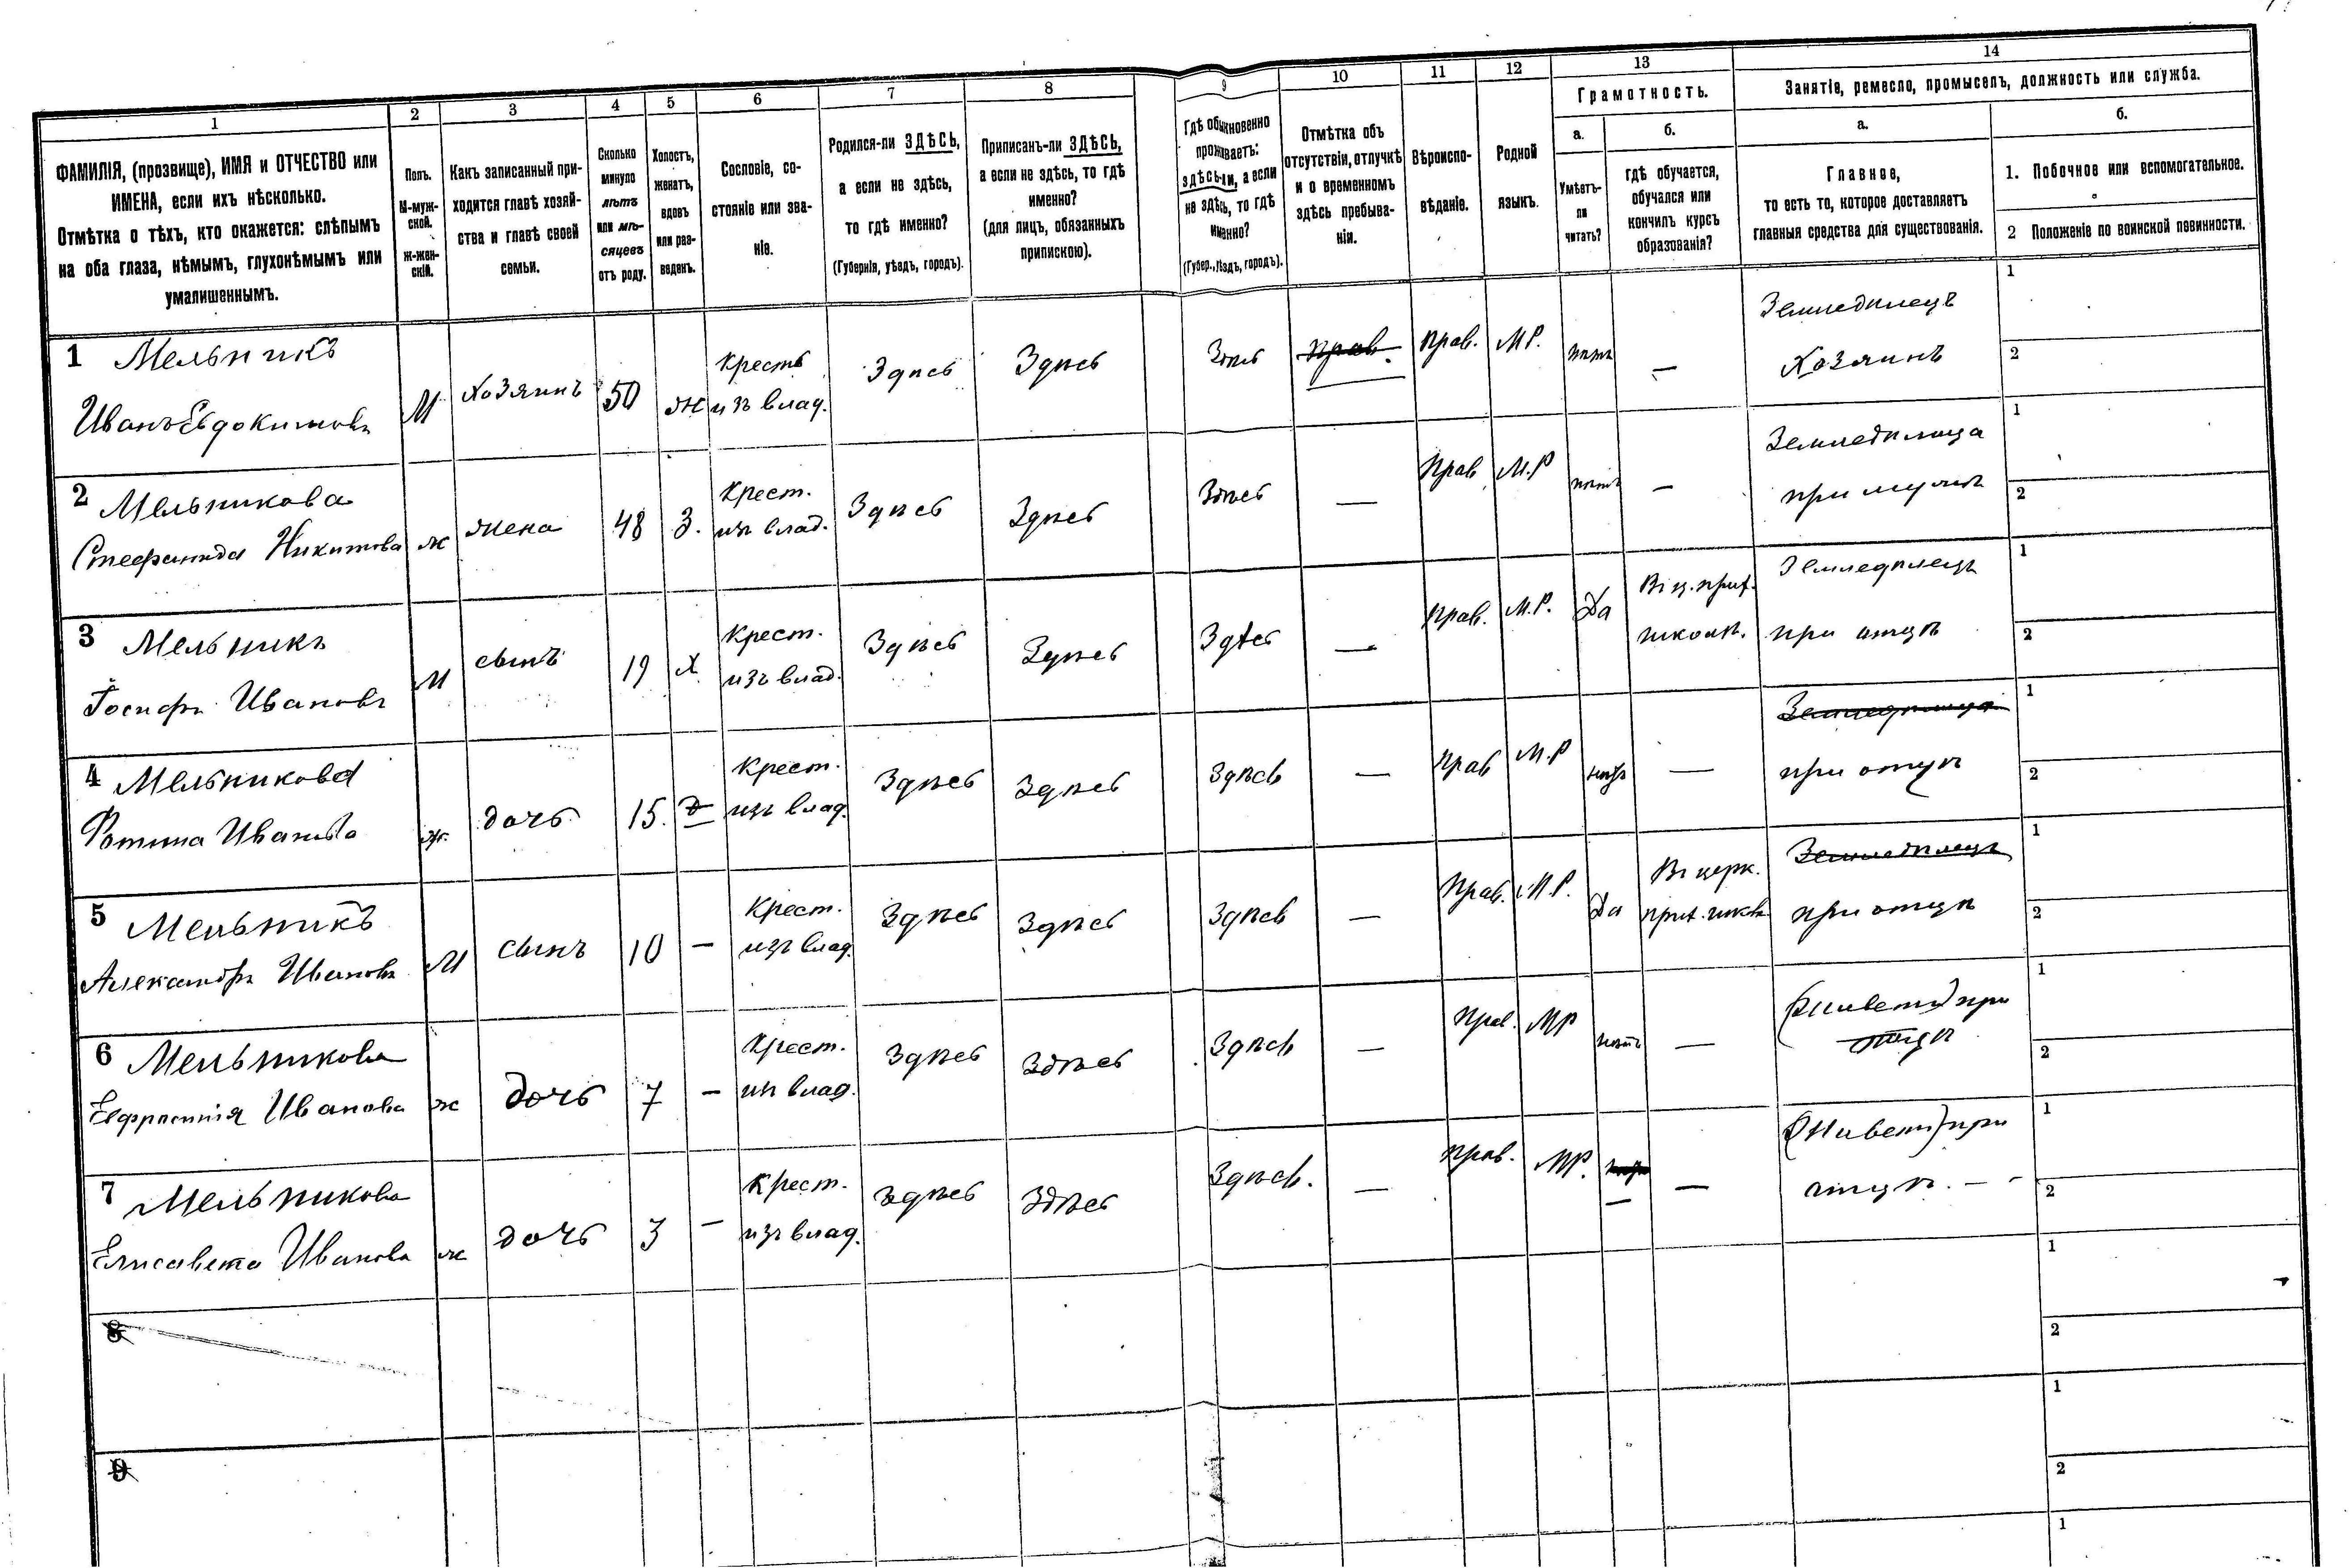 1
2
3
4
5
6
7
8
9
10
11
12
13
14
ФАМИЛІЯ, (прозвище), ИМЯ и ОТЧЕСТВО или
ИМЕНА, если ихъ нѣсколько.
Отмѣтка о тѣхъ, кто окажется: слѣпымъ
на оба глаза, нѣмымъ, глухонѣмымъ или
умалишеннымъ.
Полъ.
М-муж-
ской.
Ж-жен-
скій.
Какъ записанный при-
ходится главѣ хозяй-
ства и главѣ своей
семьи.
Сколько
минуло
лѣтъ
или мѣ-
сяцевъ
отъ роду.
Холостъ,
женатъ,
вдовъ
или раз-
веденъ.
Сословіе, со-
стояніе или зва-
ніе.
Родился-ли ЗДѢСЬ,
а если не здѣсь,
то гдѣ именно?
(Губернія, уѣздъ, городъ).
Приписанъ-ли ЗДѢСЬ,
а если не здѣсь, то гдѣ
именно?
(для лицъ, обязанныхъ
припискою).
Гдѣ обыкновенно
проживаетъ:
здѣсь-ли, а если
не здѣсь, то гдѣ
именно?
(Губер., уѣздъ, городъ).
Отмѣтка объ
отсутствіи, отлучкѣ
и о временномъ
здѣсь пребыва-
ніи.
Вѣроиспо-
вѣданіе.
Родной
языкъ.
Грамотность.
а.
Умѣетъ-
ли
читать?
б.
гдѣ обучается,
обучался или
кончилъ курсъ
образованія?
Занятіе, ремесло, промыселъ, должность или служба.
а.
Главное,
то есть то, которое доставляетъ
главныя средства для существованія.
б.
1. Побочное или вспомогательное.
2 Положеніе по воинской повинности.
1 Мельникъ
Иванъ Евдокимовъ
М
хозяинъ
50
ж
Крестъ
изъ влад.
Здѣсь
Здѣсь
Здѣсь
Прав.
Прав.
М.Р.
нѣтъ
—
Земледѣлецъ
Хозяинъ
1
2
2 Мельникова
Стефанида Никитова
ж
жена
48
З.
Крест.
изъ влад.
Здѣсь
Здѣсь
Здѣсь
—
Прав
М.Р
нѣтъ
—
Земледѣлица
при мужѣ
1
2
3 Мельникъ
Іосифъ Ивановъ
М
сынъ
19
Х
Крест.
изъ влад.
Здѣсь
Здѣсь
Здѣсь
—
Прав.
М.Р.
Да
Въ ц. прих.
школѣ.
Земледѣлецъ
при отцѣ
1
2
4 Мельникова
Фотина Иванова
ж.
дочь
15.
Крест.
изъ влад.
Здѣсь
Здѣсь
Здѣсь
—
Прав
М.Р
нѣтъ
—
Земледѣлица
при отцѣ
1
2
5 Мельникъ
Александръ Ивановъ
М
сынъ
10
—
Крест.
изъ влад.
Здѣсь
Здѣсь
Здѣсь
—
Прав.
М.Р.
Да
Въ церк.
прих. школѣ
Земледѣлецъ
при отцѣ
1
2
6 Мельникова
Евфросинія Иванова
ж
дочь
7
—
Крест.
изъ влад.
Здѣсь
Здѣсь
Здѣсь
—
Прав.
МР
нѣтъ
—
(Живетъ) при
отцѣ
1
2
7 Мельникова
Елисавета Иванова
ж
дочь
3
—
Крест.
изъ влад.
Здѣсь
Здѣсь
Здѣсь.
—
Прав.
МР.
нѣтъ
—
—
(Живетъ) при
отцѣ. —
1
2
8
1
2
9
1
2
1